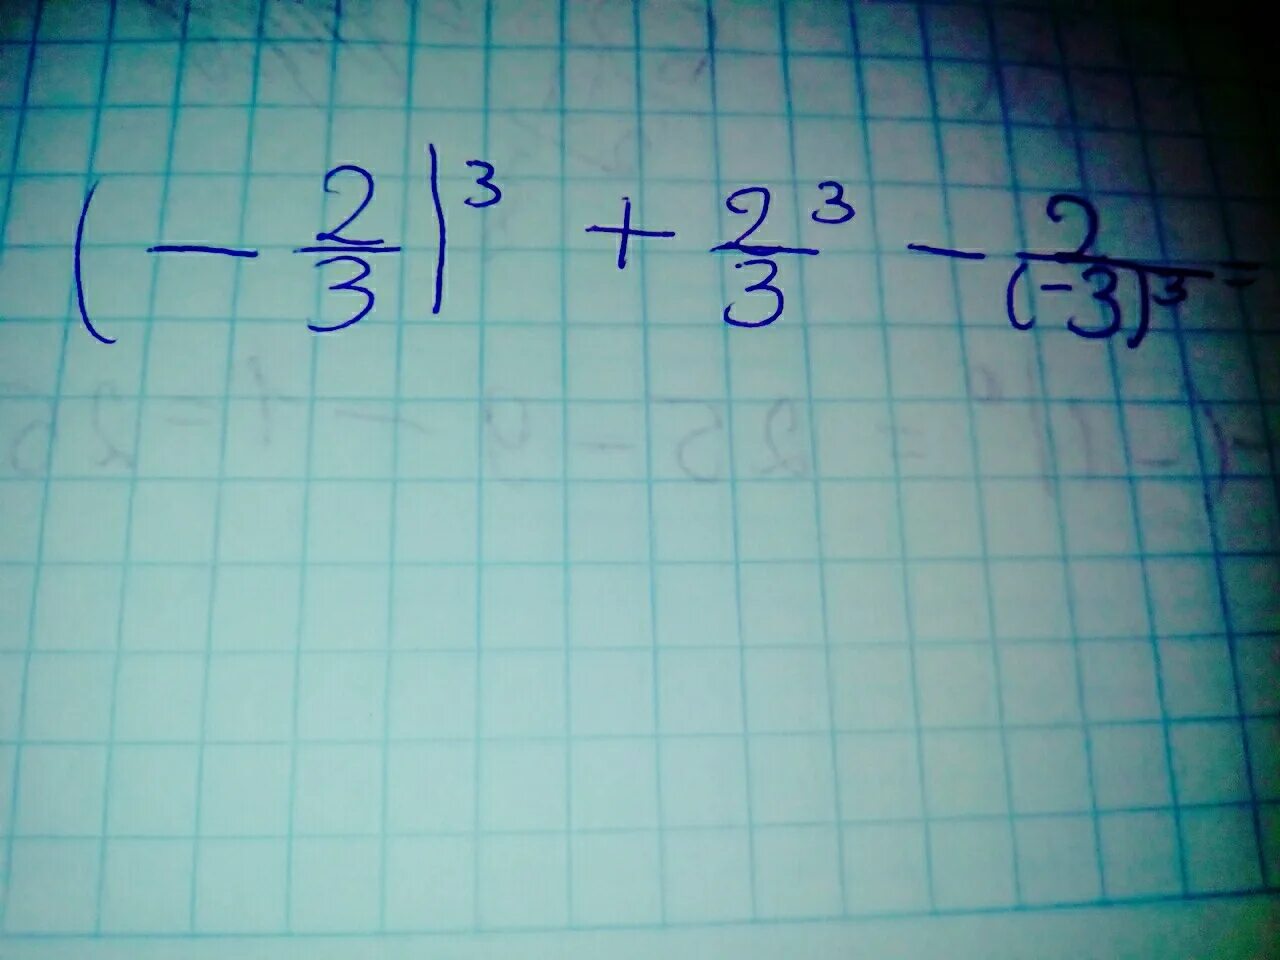 (- 2/3)³ + 2³/3 - 2/(-3)³ =